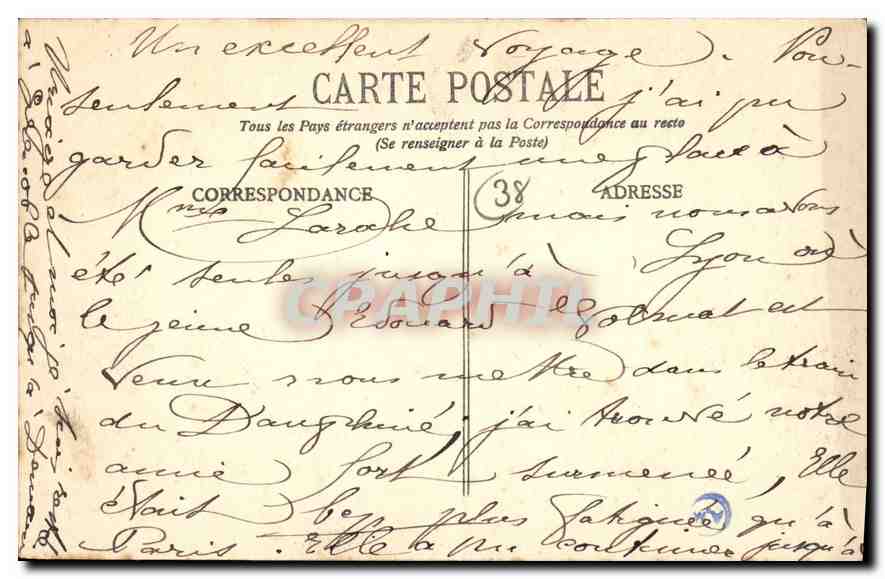 Un excellent voyage. Non-
CARTE POSTALE
seulement j'ai pu
Tous les Pays étrangers n'acceptent pas la Correspondance au recto
(Se renseigner à la Poste)
garder facilement une place à
CORRESPONDANCE
38
ADRESSE
Mme Larahe mais nous avons
été seules jusqu'à Lyon où
CPARHIL
le jeune Edouard est
venu nous mettre dans le train
du Dauphiné, j'ai trouvé notre
amie fort surmenée, Elle
était bep plus fatiguée qu'à
Paris. Elle a pu continuer jusqu'à